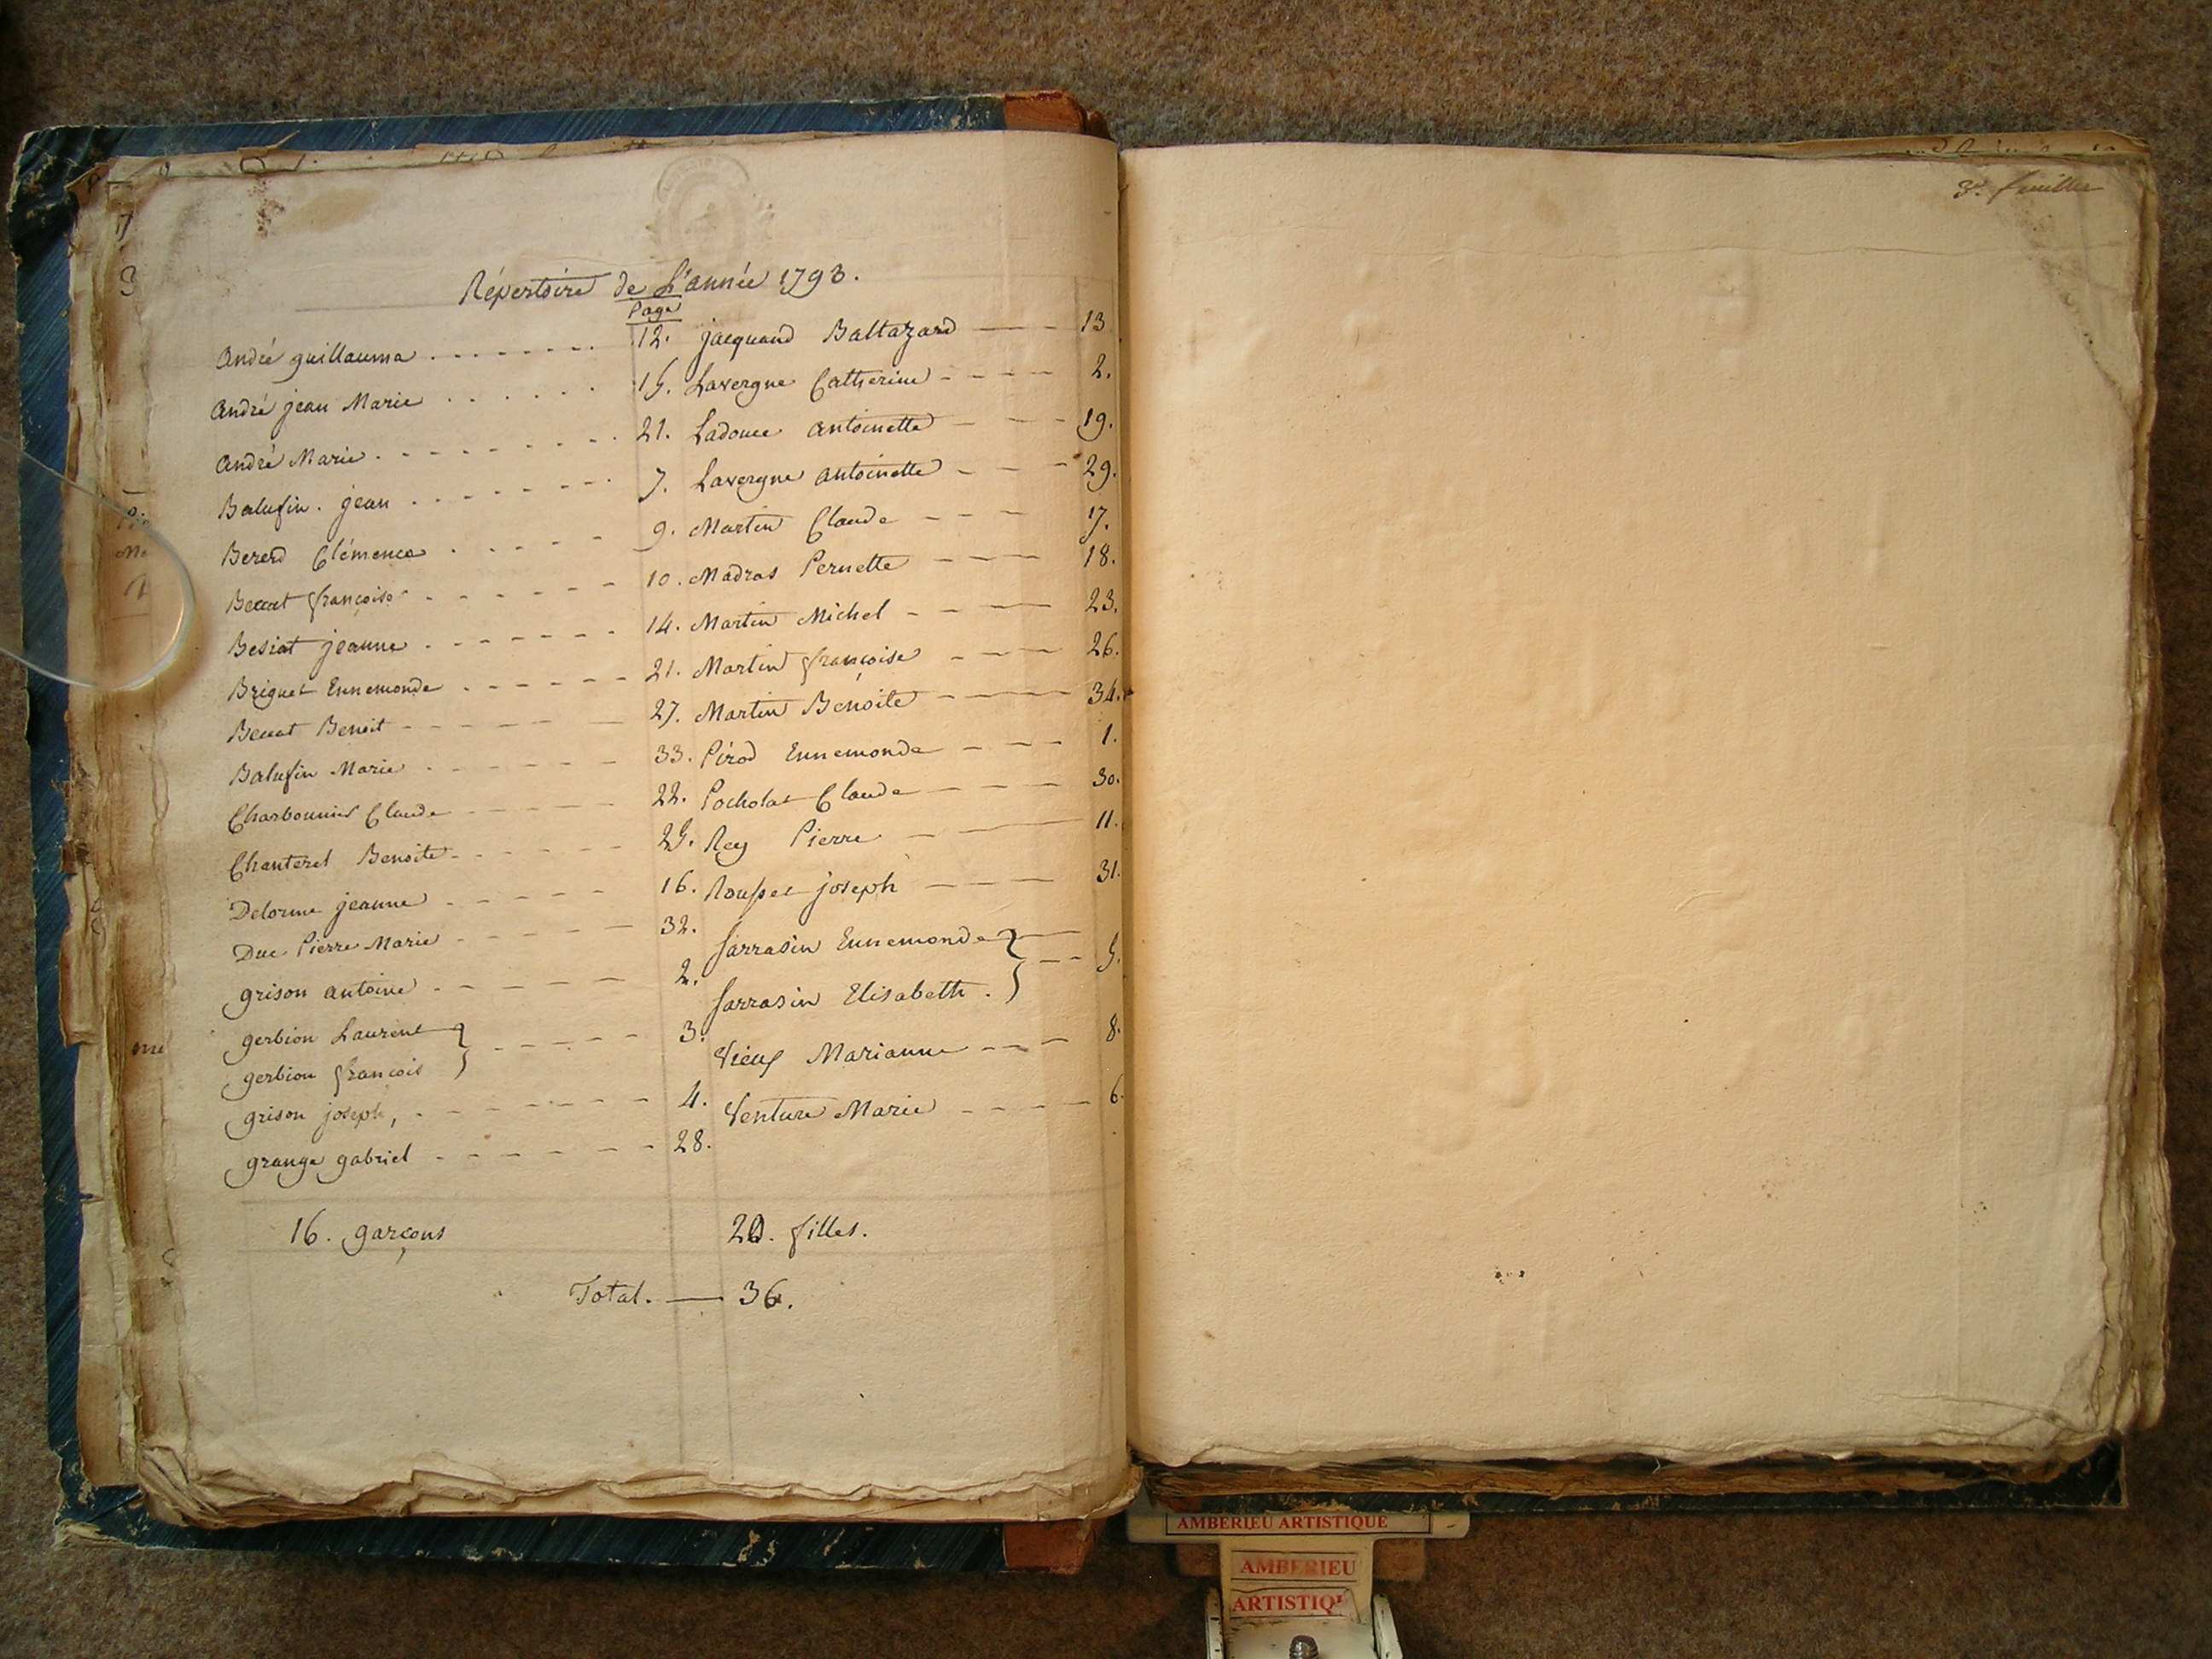 8e. feuille
Répertoire de L'année 1793.
Page
André guillauma . . . . . . . 12.
André jean Marie . . . . . . 15.
André Marie . - - - - - - . 21.
Balufin . jean . - - - - - - . 7.
Bererd Clémence . - - - - 9.
françoise - - - - - 10.
Besiat jeanne . - - - - - - 14.
Briguet Ennemonde . - - - - - 21.
Benoit - - - - - - 27.
Balufin Marie . - - - - - 33.
Charbonnier Claude - - - - - 22.
Chanterel Benoite - - - - - 25.
Delorme jeanne . - - - - 16.
Duc Pierre Marie . - - - - 32.
grison antoine . - - - - - 2.
gerbion Laurent } - - - - - 3.
gerbion françois }
grison joseph, . - - - - - - 4.
grange gabriel - - - - - - 28.
jacquand Baltazard — - - 13
Lavergne Catherine - - - - 2.
Ladouce antoinette - - - 19.
Lavergne antoinette - - - 29.
Martin Claude - - - 17.
Madras Pernette - - - 18.
Martin Michel - - - 23.
Martin françoise - - - 26.
Martin Benoite - - - 34.
Pirod Ennemonde - - - 1.
Pocholat Claude - - - - 30.
Rey Pierre - — 11.
Rousset joseph - - - 31.
Sarrasin Ennemonde } - - 5.
Sarrasin Elisabeth . }
Vieux Marianne - - - 8.
Venture Marie - - - - 6.
16. garçons 20. filles.
Total. — 36.
AMBERIEU ARTISTIQUE
AMBERIEU
ARTISTIQU